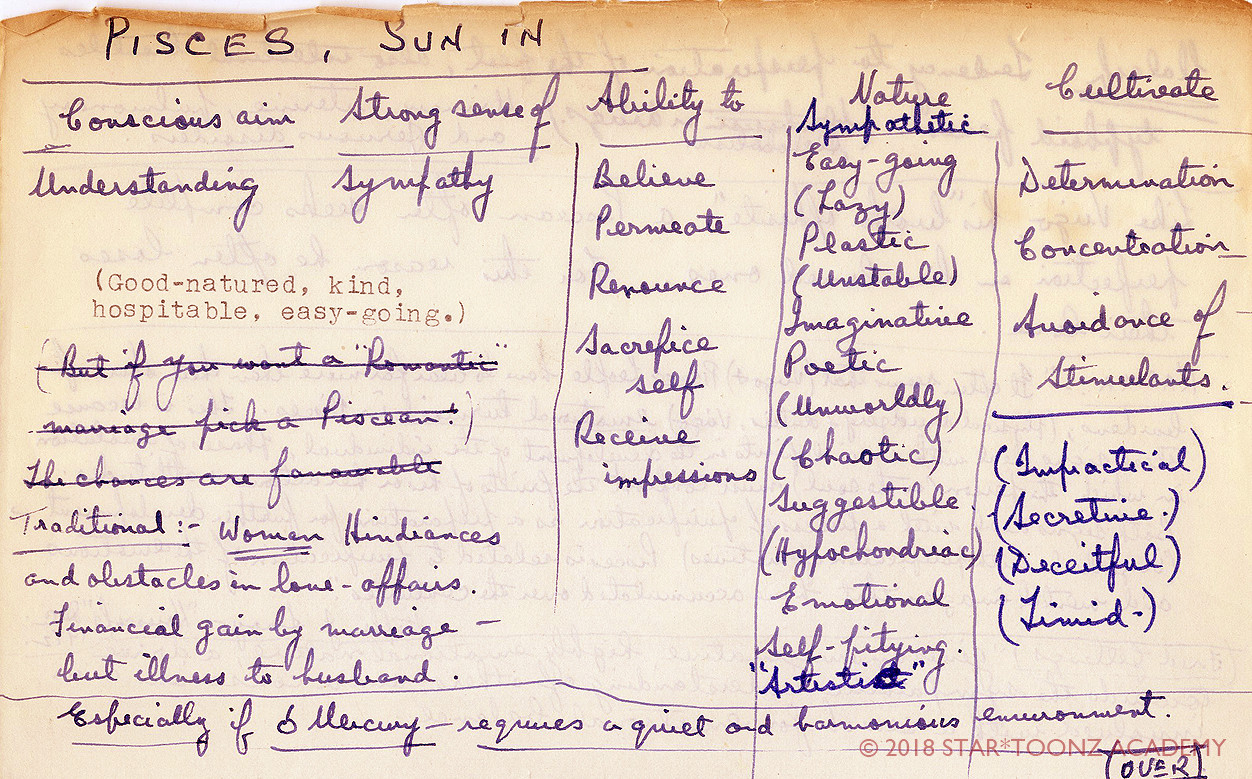 PISCES, SUN IN
Conscious aim
Understanding
Strong sense of
Sympathy
(Good-natured, kind,
hospitable, easy-going.)
(But if you want a "Romantic"
marriage pick a Piscean!)
The chances are favourable
Traditional:- Women Hindrances
and obstacles in love-affairs.
Financial gain by marriage -
but illness to husband.
Ability to
Believe
Permeate
Renounce
Sacrifice
self
Receive
impressions
Nature
Sympathetic
Easy-going
(Lazy)
Plastic
(Unstable)
Imaginative
Poetic
(Unworldly)
(Chaotic)
Suggestible.
(Hypochondriac)
Emotional
Self-pitying.
"Artistic"
Cultivate
Determination
Concentration
Avoidance of
Stimulants.
(Impractical)
(Secretive.)
(Deceitful)
(Timid-)
Especially if ☌ Mercury - requires a quiet and harmonious environment.
(OVER)
© 2018 STAR*TOONZ ACADEMY